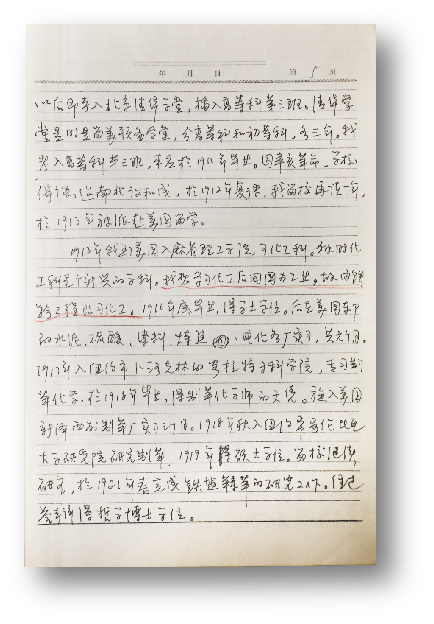 年 月 日 第 5 页
以后即考入北京清华学堂，插入高等科第三班。清华学
堂是留美预备学堂，分高等科和初等科，各三年。我
考入高等科第三班，应于1911年毕业。因辛亥革命，学校
停课，南北议和成，于1912年复课，我留校再读一年，
于1913年被派赴美国留学。
1913年我到美国入麻省理工学院，习化工科。
工科是个新兴的学科，我想学习化工后回国办工业，
习化工。1916年底毕业，得学士学位。后在美国东部
的水泥，硫酸，染料，炼焦，等厂实习，共
1917年入纽约市卜洛克林的普拉特专科学院，专习制
革化学，于1918年毕业，得制革化学师的文凭。旋入美国
制革厂实习。1918年秋入纽约哥伦比亚
大学研究院研究制革，1919年得硕士学位。留校继续
研究，于1921年春完成铁盐鞣革的研究工作。
得哲学博士学位。